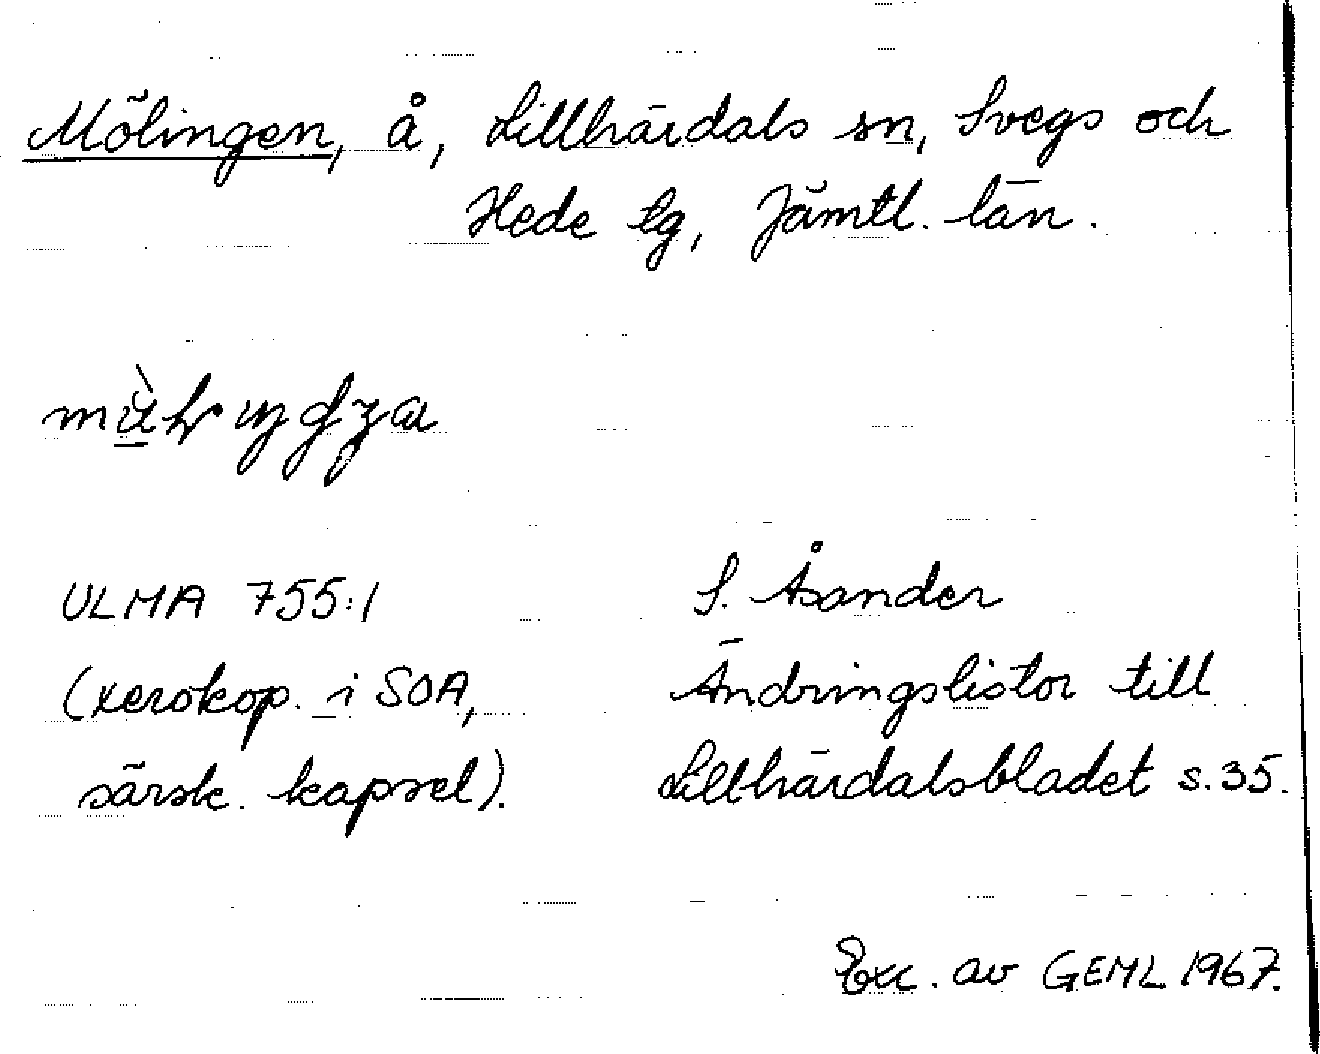 Mölingen, å, Lillhärdals sn, Svegs och
Hede tg, Jämtl. län.
ULMA 755:1
S. Åsander
(xerokop. i SOA,
Ändringslistor till
särsk. kapsel).
Lillhärdalsbladet s. 35.
Exc. av GEML 1967.